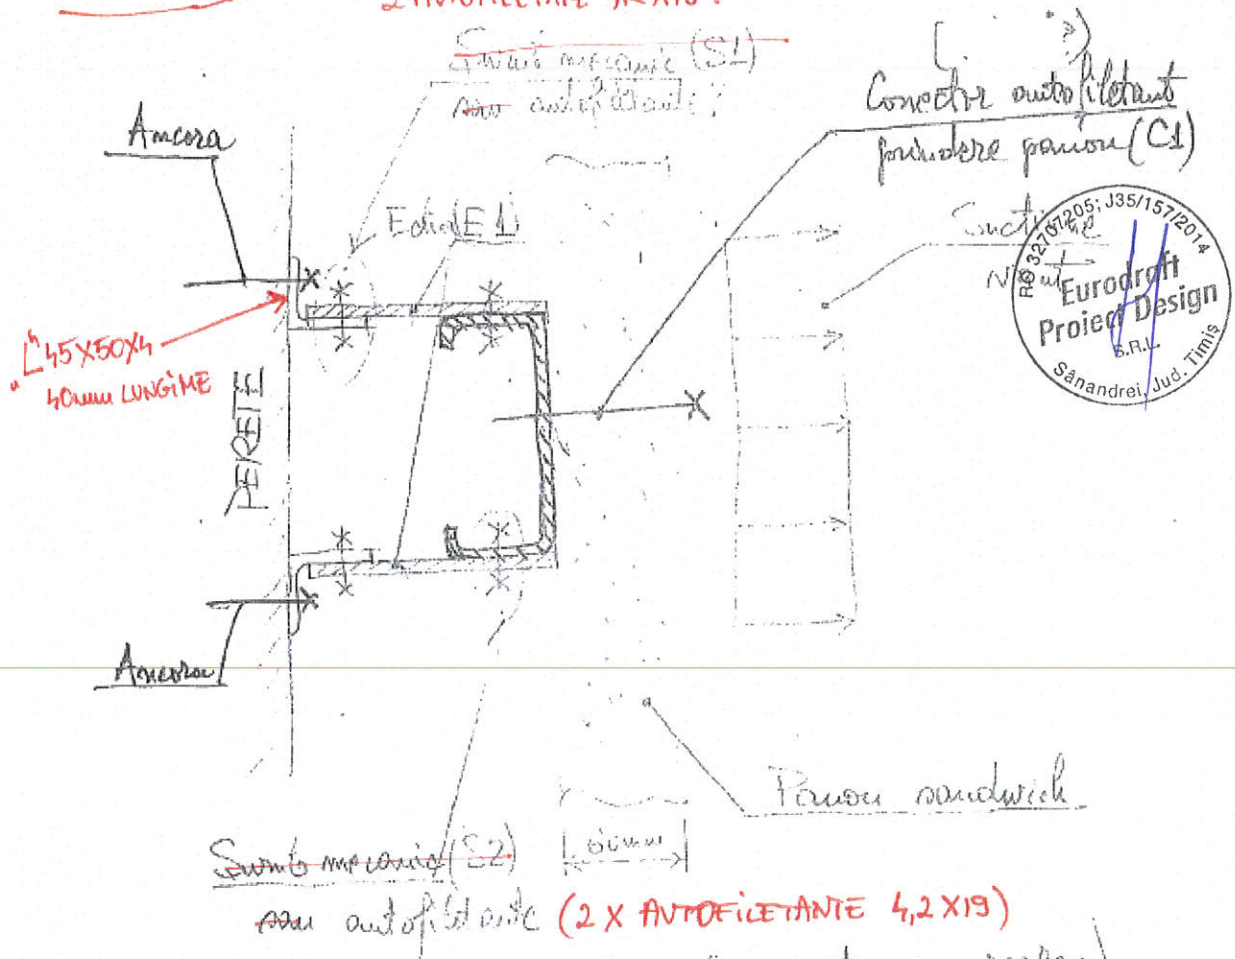 2 AUTOFILETANTE
Șurub mecanic (S1)
sau autofiletante?
Conector autofiletant
prindere panou (C1)
Ancora
Eclisă (E1)
Sucțiune
RO 32707205; J35/157/2014
Eurodraft
Proiect Design
S.R.L.
Sânandrei, Jud. Timiș
"L" 45X50X4
40mm LUNGIME
PERETE
Ancora
Panou sandwich
Șurub mecanic (S2)
60mm
sau autofiletante (2 X AUTOFILETANTE 4,2X19)